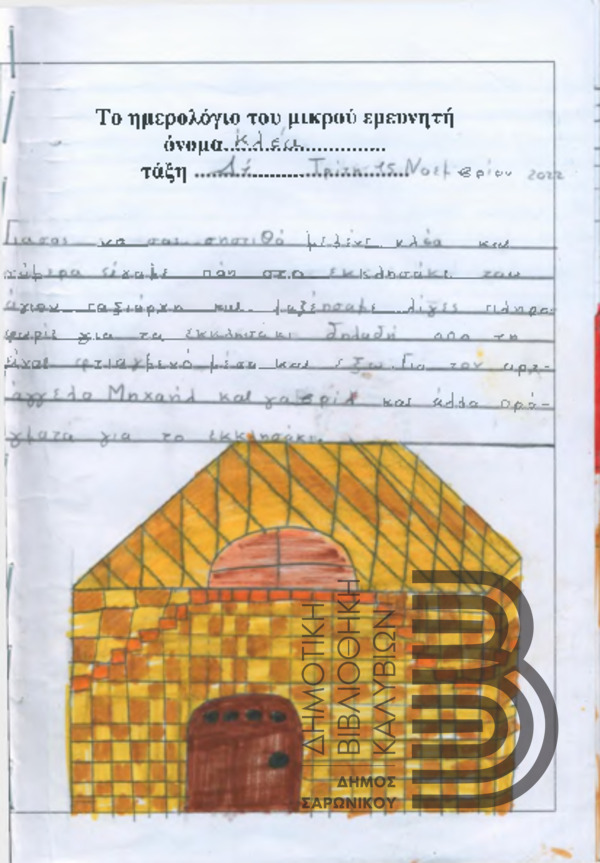 Το ημερολόγιο του μικρού ερευνητή
όνομα Κλέα
τάξη Δ1 Τρίτη 15 Νοεμβρίου 2022
Γιασας να σας με λένε κλέα και
σήμερα είχαμε πάη στο εκκλησάκι του
άγιου ταξιάρχη και μαζέπσαμε λίγες πληρο-
φορίε για το εκκλησάκι δηλαδή απο τη
είχαι φτιαγμενό μέσα και έξω. Για τον αρχ-
άγγελο Μηχαήλ και γαβριλ και άλλα πρά-
γματα για το εκκλησάκι.
ΔΗΜΟΤΙΚΗ
ΒΙΒΛΙΟΘΗΚΗ
ΚΑΛΥΒΙΩΝ
ΔΗΜΟΣ
ΣΑΡΩΝΙΚΟΥ